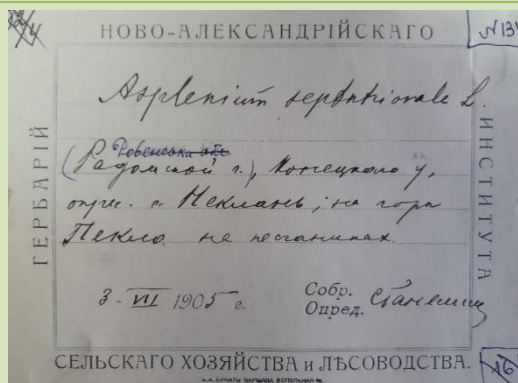 НОВО-АЛЕКСАНДРІЙСКАГО
№ 134
ГЕРБАРІЙ
ИНСТИТУТА
Asplenium septentrionale L.
Ровенська обл
(Радомской г.), Конецкого у,
окрес. с. Неклань; на горѣ
Пекло на песчаниках.
3 - VII 1905 г.
Собр.
Опред.
СЕЛЬСКАГО ХОЗЯЙСТВА и ЛѢСОВОДСТВА.
16